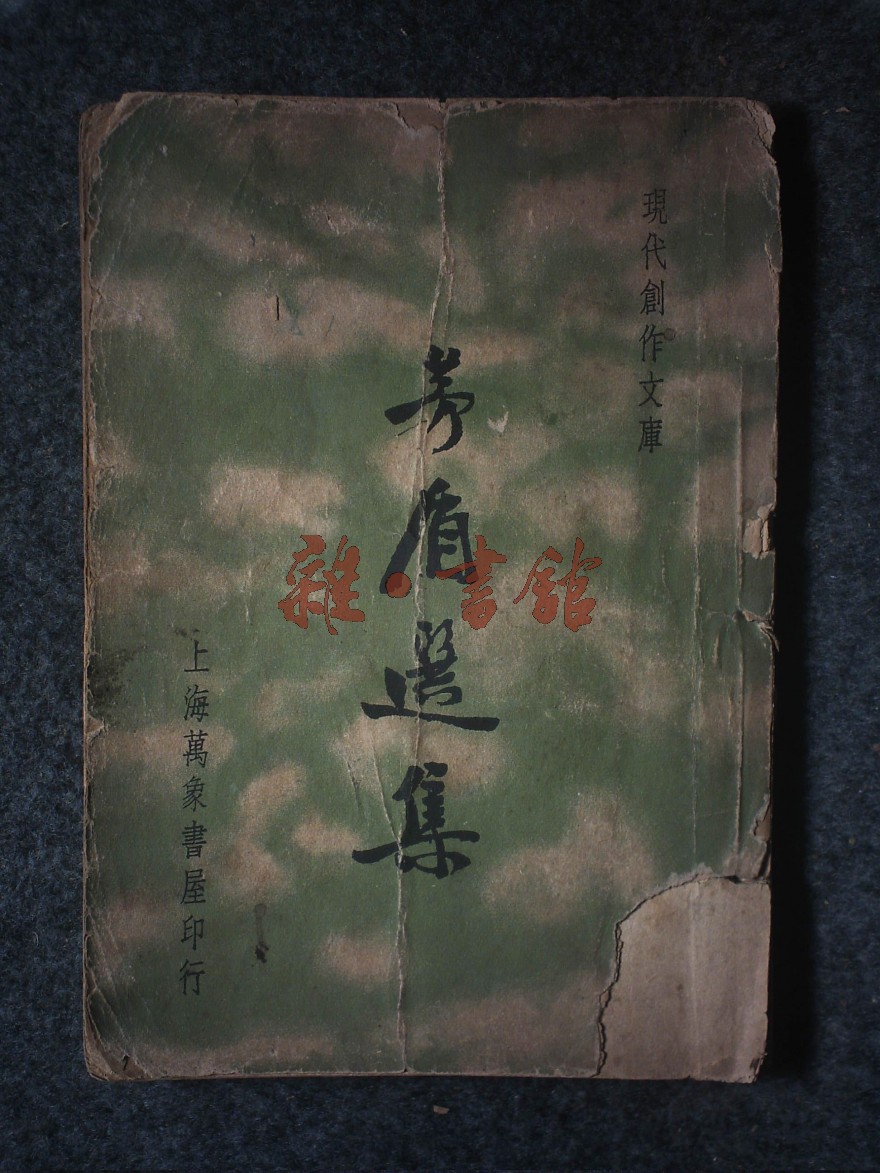 現代創作文庫
茅盾選集
上海萬象書屋印行
雜·書館